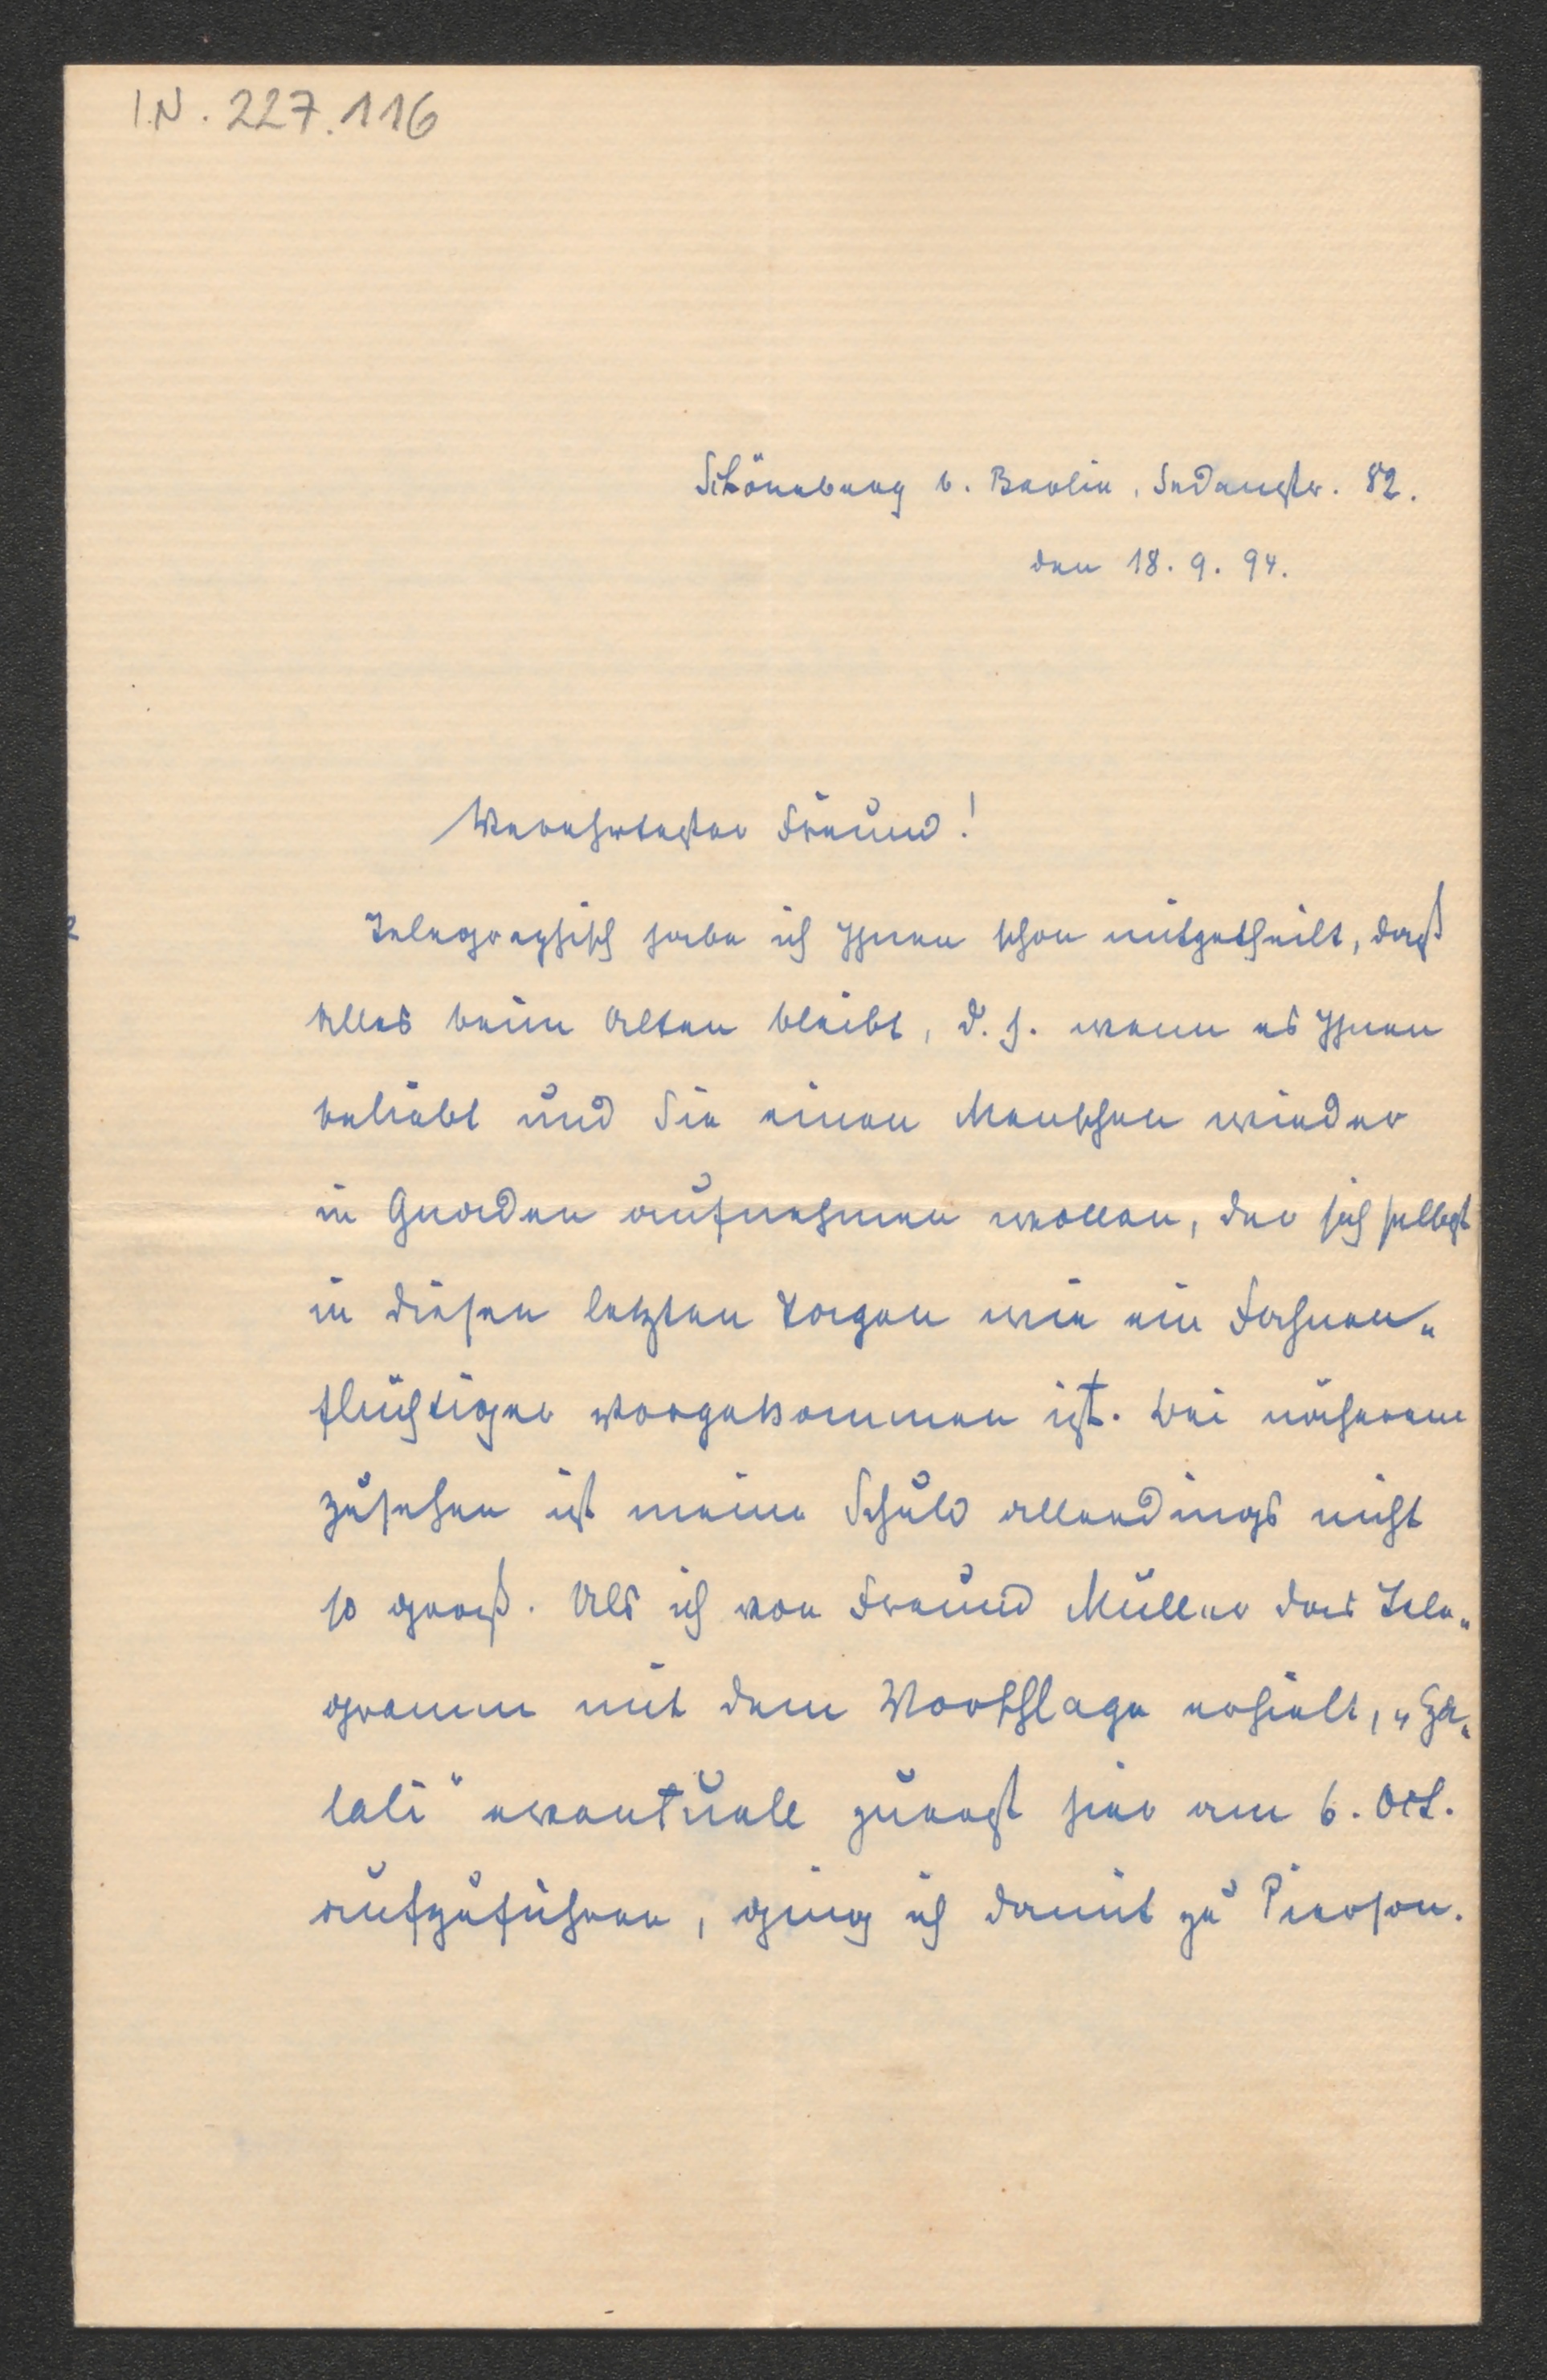 I.N. 227.116
Schöneberg b. Berlin, Sedanstr. 82.
den 18. 9. 94.
Verehrtester Freund!
Telegraphisch habe ich Ihnen schon mitgetheilt, daß
Alles beim Alten bleibt, d. h. wenn es Ihnen
beliebt und Sie einen Menschen wieder
in Gnaden aufnehmen wollen, der sich selbst
in diesen letzten Tagen wie ein Fahnen„
flüchtiger vorgekommen ist. Bei näherem
Zusehen ist meine Schuld allerdings nicht
so groß. Als ich von Freund Müller das Tele„
gramm mit dem Vorschlage erhielt, „Ha„
lali“ eventuell zuerst hier am 6. Oct.
aufzuführen, ging ich damit zu Pierson.